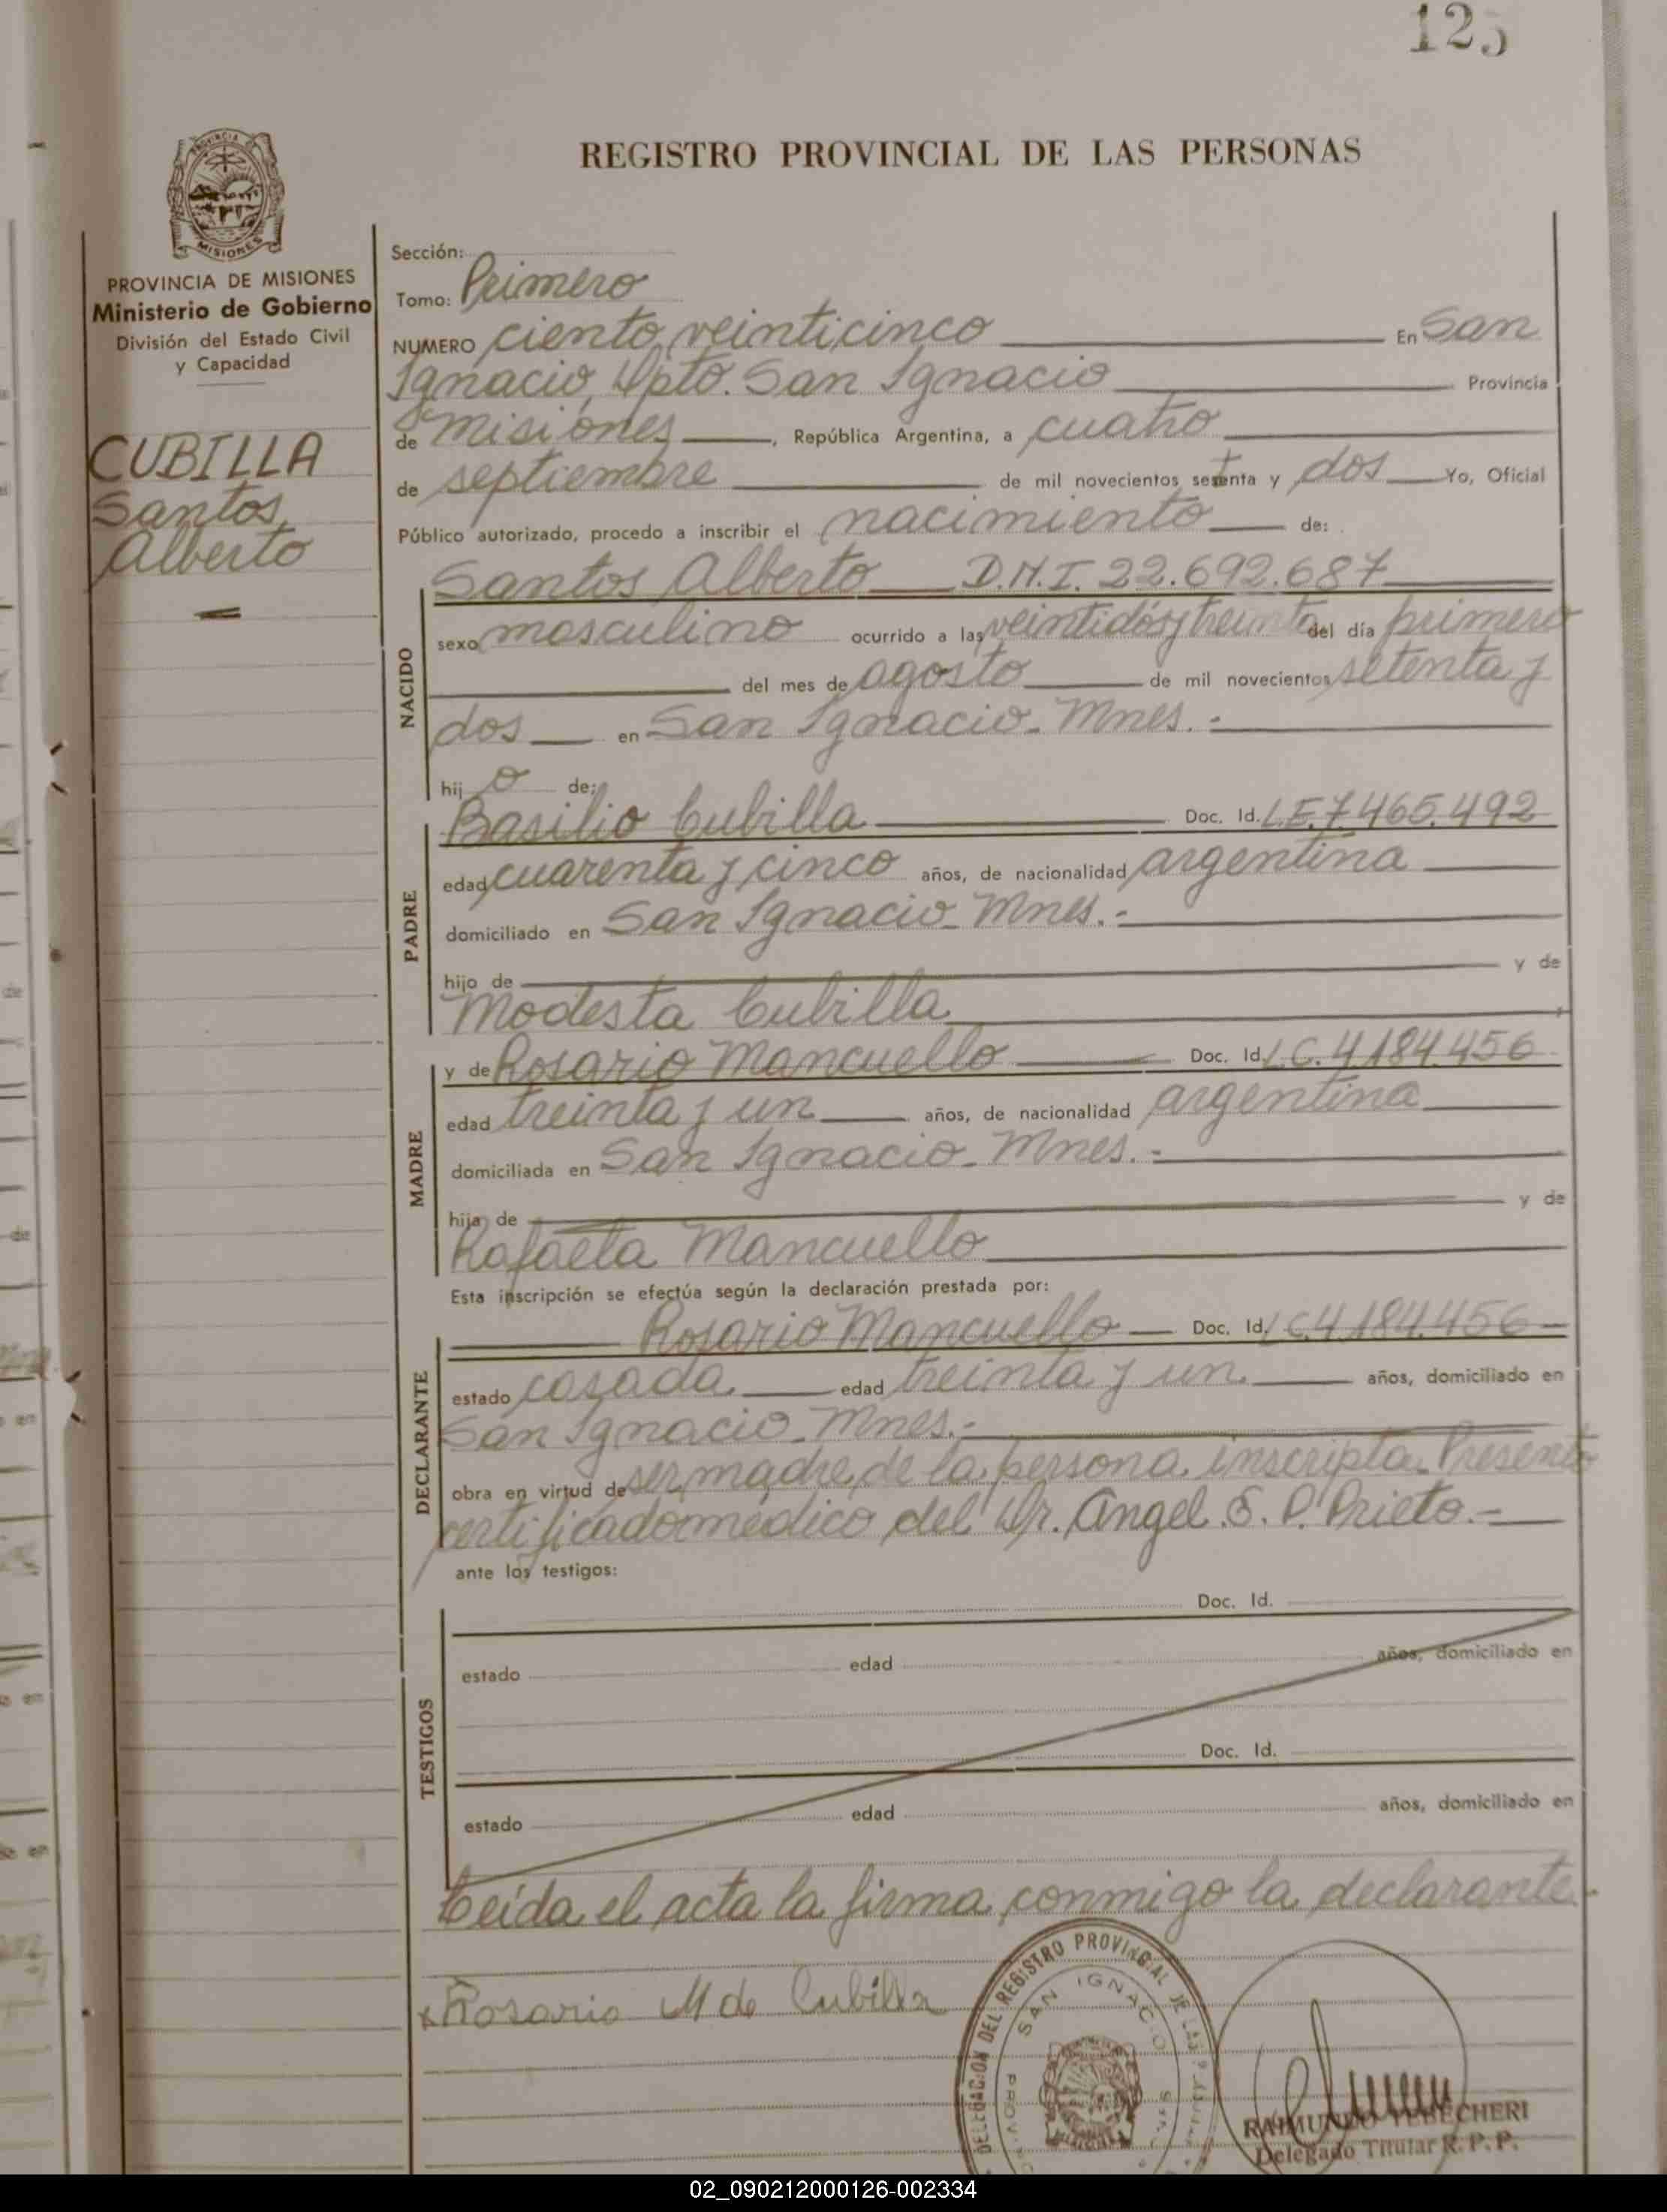 125
REGISTRO PROVINCIAL DE LAS PERSONAS
MISIONES
PROVINCIA DE MISIONES
Ministerio de Gobierno
División del Estado Civil
y Capacidad
CUBILLA
Santos
Alberto
Sección:
Tomo: Primero
NUMERO ciento veinticinco En San
Ignacio, Dpto. San Ignacio Provincia
de Misiones, República Argentina, a cuatro
de septiembre de mil novecientos setenta y dos Yo, Oficial
Público autorizado, procedo a inscribir el nacimiento de:
Santos Alberto D.N.I. 22.692.687
NACIDO
sexo masculino ocurrido a las veintidós y treinta del día primero
del mes de agosto de mil novecientos setenta y
dos en San Ignacio - Mnes. -
hijo de:
PADRE
Basilio Cubilla Doc. Id. L.E. 7.465.492
edad cuarenta y cinco años, de nacionalidad argentina
domiciliado en San Ignacio - Mnes. -
hijo de y de
Modesta Cubilla
MADRE
y de Rosario Mancuello Doc. Id. L.C. 4.184.456
edad treinta y un años, de nacionalidad argentina
domiciliada en San Ignacio - Mnes. -
hija de y de
Rafaela Mancuello
Esta inscripción se efectúa según la declaración prestada por:
DECLARANTE
Rosario Mancuello Doc. Id. L.C. 4.184.456
estado casada edad treinta y un años, domiciliado en
San Ignacio - Mnes. -
obra en virtud de ser madre de la persona inscripta. Presento
certificado médico del Dr. Angel S. P. Prieto. -
ante los testigos:
TESTIGOS
Doc. Id.
estado edad años, domiciliado en
Doc. Id.
estado edad años, domiciliado en
Leída el acta la firma conmigo la declarante.
x Rosario M de Cubilla
DELEGACION DEL REGISTRO PROVINCIAL DE LAS
SAN IGNACIO
RAIMUNDO TEBECHERI
Delegado Titular R. P. P.
02_090212000126-002334